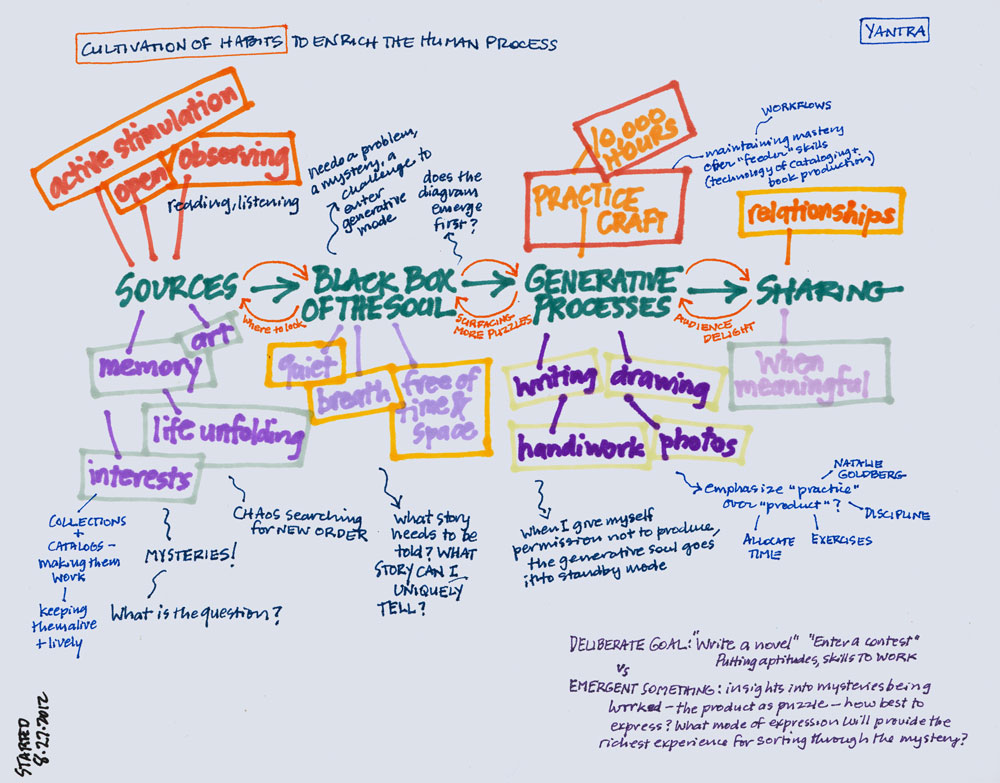 CULTIVATION OF HABITS TO ENRICH THE HUMAN PROCESS
YANTRA
active stimulation
open
observing
reading, listening
needs a problem,
a mystery, a
challenge to
enter
generative
mode
does the
diagram
emerge
first?
10,000
HOURS
PRACTICE
CRAFT
WORKFLOWS
maintaining mastery
over "feeder" skills
(technology of cataloging +
book production)
relationships
SOURCES
BLACK BOX
OF THE SOUL
GENERATIVE
PROCESSES
SHARING
where to look
SURFACING
MORE PUZZLES
AUDIENCE
DELIGHT
art
memory
life unfolding
interests
quiet
breath
free of
time &
space
writing
drawing
handiwork
photos
when
meaningful
COLLECTIONS
+
CATALOGS -
making them
work
keeping
them alive
+ lively
MYSTERIES!
What is the question?
CHAOS searching
for NEW ORDER
What story
needs to be
told? WHAT
STORY CAN I
UNIQUELY
TELL?
when I give myself
permission not to produce,
the generative soul goes
into standby mode
emphasize "practice"
over "product"?
NATALIE
GOLDBERG
DISCIPLINE
EXERCISES
ALLOCATE
TIME
DELIBERATE GOAL: "Write a novel" "Enter a contest"
Putting aptitudes, skills TO WORK
vs
EMERGENT SOMETHING: insights into mysteries being
worked - the product as puzzle - how best to
express? What mode of expression will provide the
richest experience for sorting through the mystery?
STARTED
8.27.2012